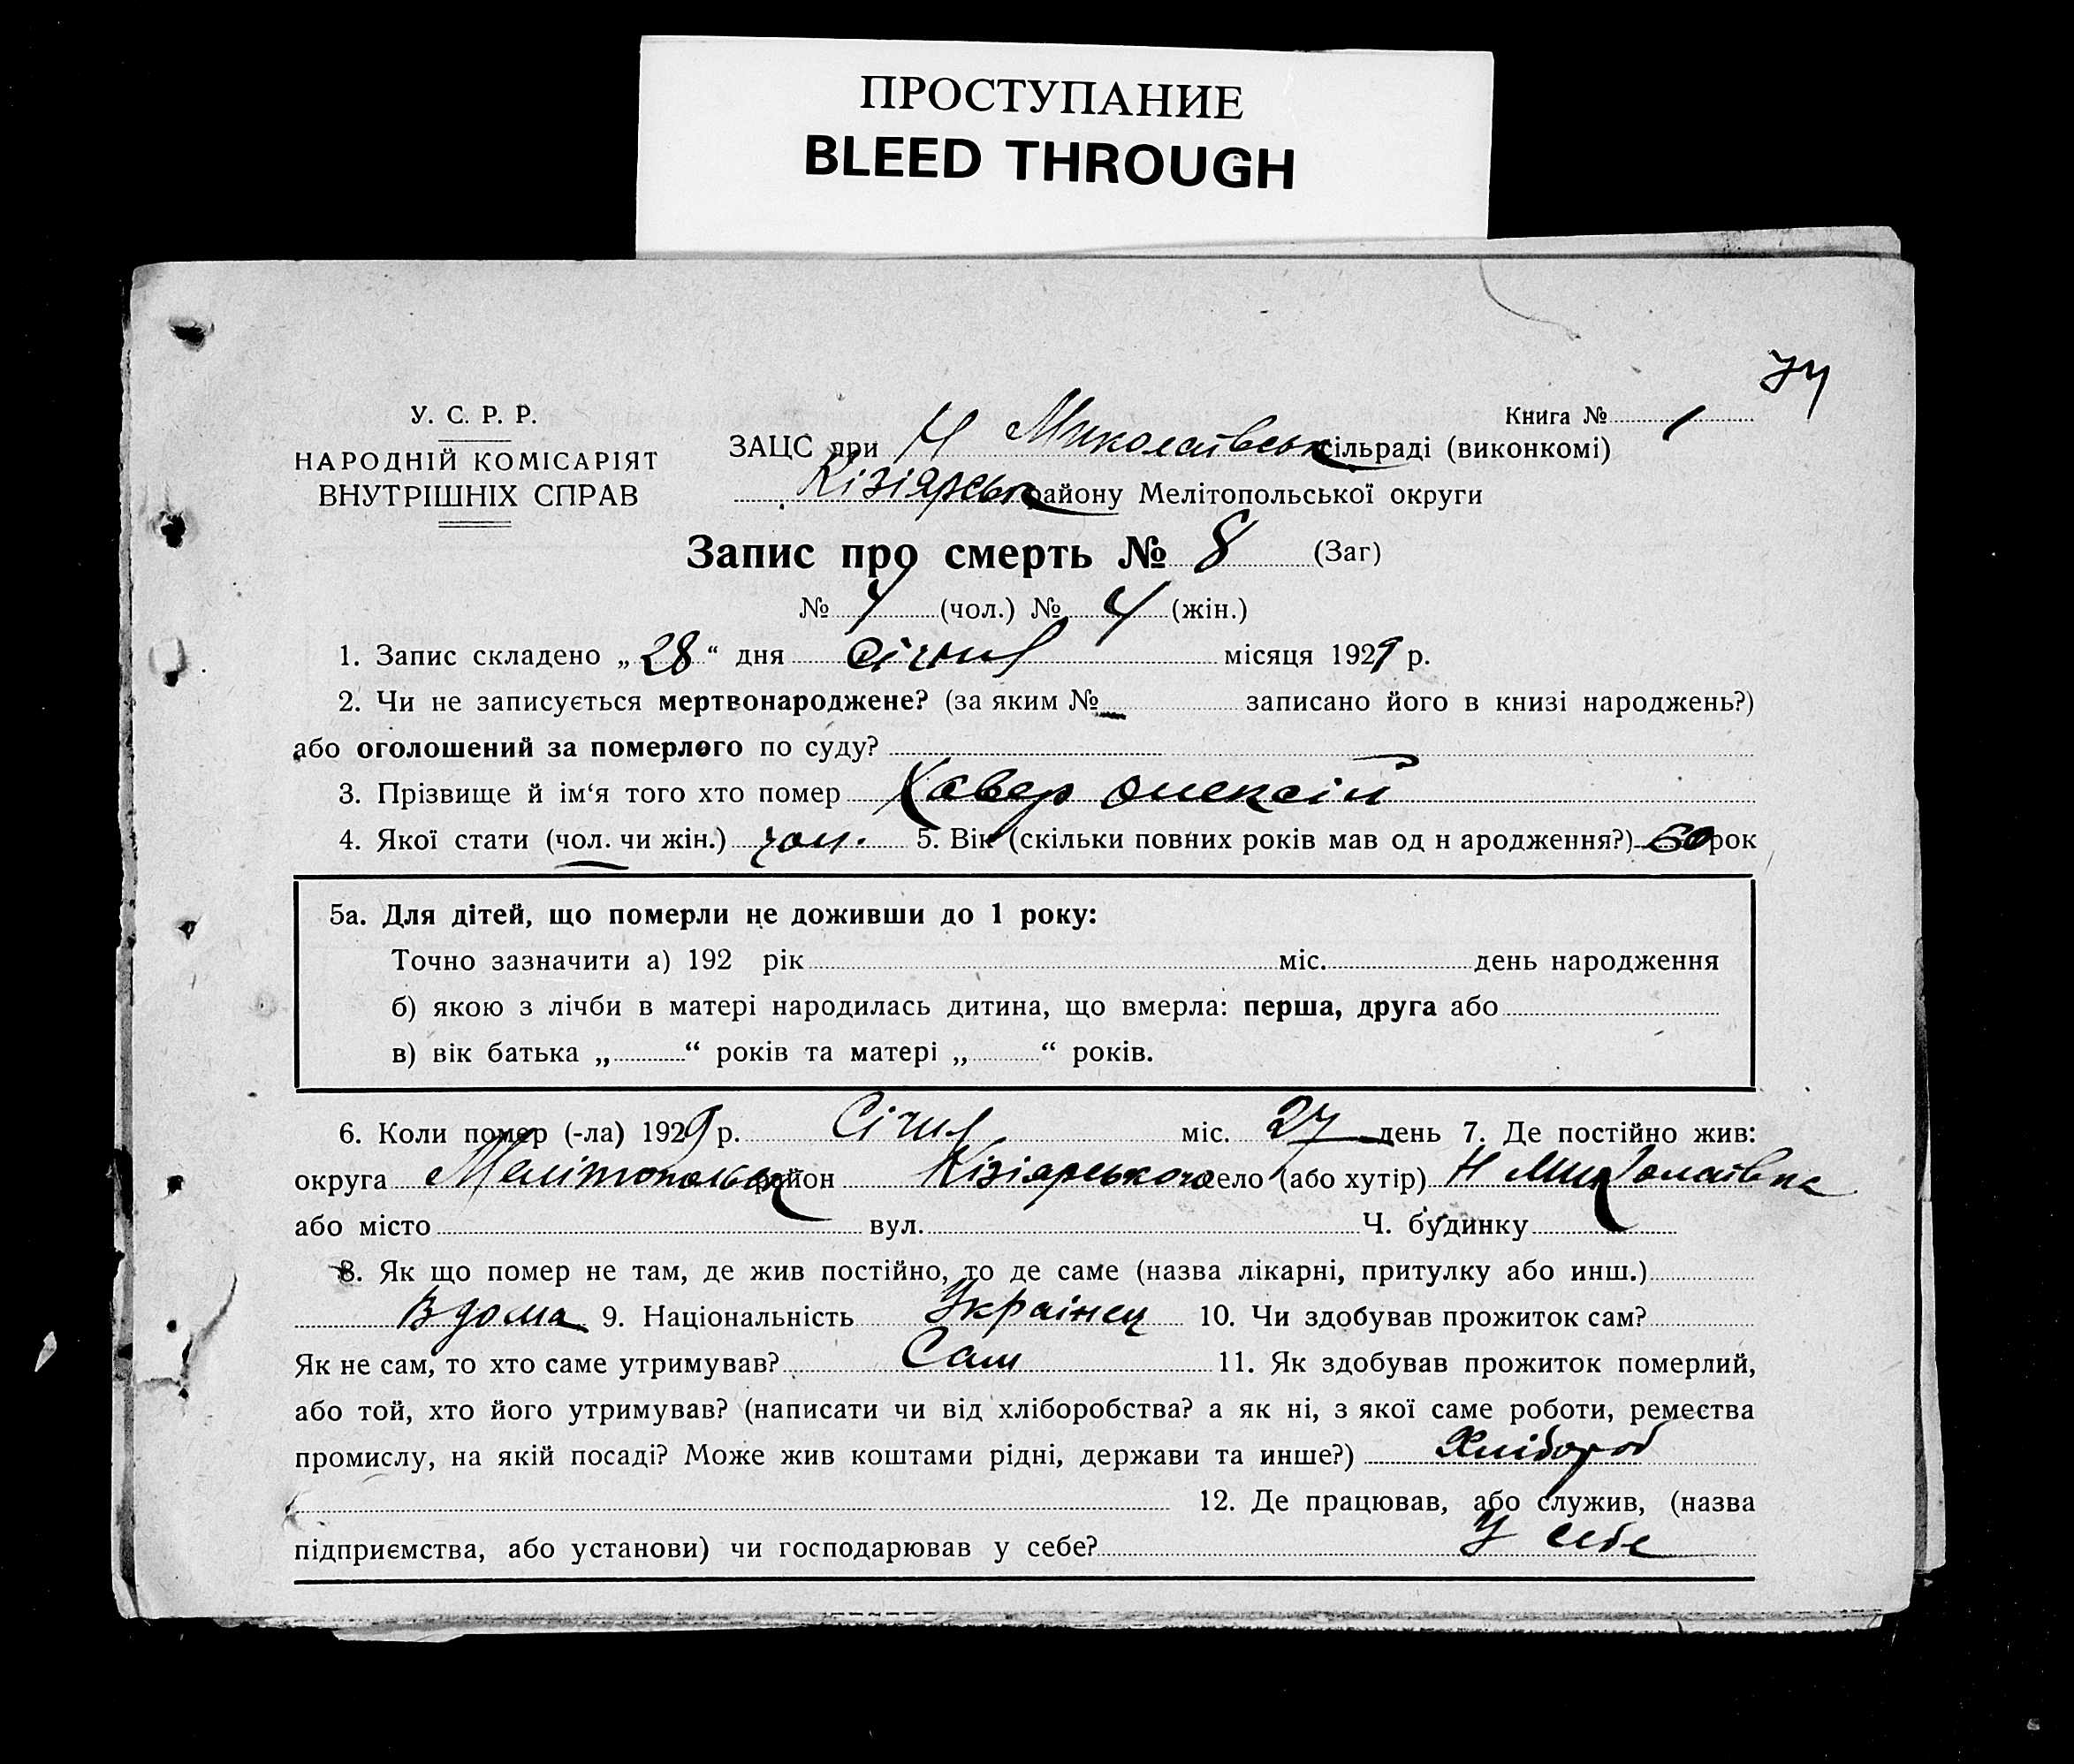 ПРОСТУПАНИЕ
BLEED THROUGH
У. С. Р. Р.
НАРОДНІЙ КОМІСАРІЯТ
ВНУТРІШНІХ СПРАВ
Книга № 1
ЗАЦС при Н Миколаївськ сільраді (виконкомі)
Кізіярськ району Мелітопольської округи
Запис про смерть № 8 (Заг)
№ 4 (чол.) № 4 (жін.)
1. Запис складено „28“ дня січня місяця 1929 р.
2. Чи не записується мертвонароджене? (за яким № записано його в книзі народжень?)
або оголошений за померлого по суду?
3. Прізвище й ім‘я того хто помер Хавер Олексій
4. Якої стати (чол. чи жін.) чол. 5. Вік (скільки повних років мав од н ародження?) 60 рок
5а. Для дітей, що померли не доживши до 1 року:
Точно зазначити а) 192 рік міс. день народження
б) якою з лічби в матері народилась дитина, що вмерла: перша, друга або
в) вік батька „ “ років та матері „ “ років.
6. Коли помер (-ла) 1929 р. Січня міс. 27 день 7. Де постійно жив:
округа Мелітопольск район Кізіярського село (або хутір) Н Миколаївка
або місто вул. Ч. будинку
8. Як що помер не там, де жив постійно, то де саме (назва лікарні, притулку або инш.)
Вдома 9. Національність Українец 10. Чи здобував прожиток сам?
Як не сам, то хто саме утримував? Сам 11. Як здобував прожиток померлий,
або той, хто його утримував? (написати чи від хліборобства? а як ні, з якої саме роботи, ремества
промислу, на якій посаді? Може жив коштами рідні, держави та инше?) Хлібороб
12. Де працював, або служив, (назва
підприємства, або установи) чи господарював у себе? У себе